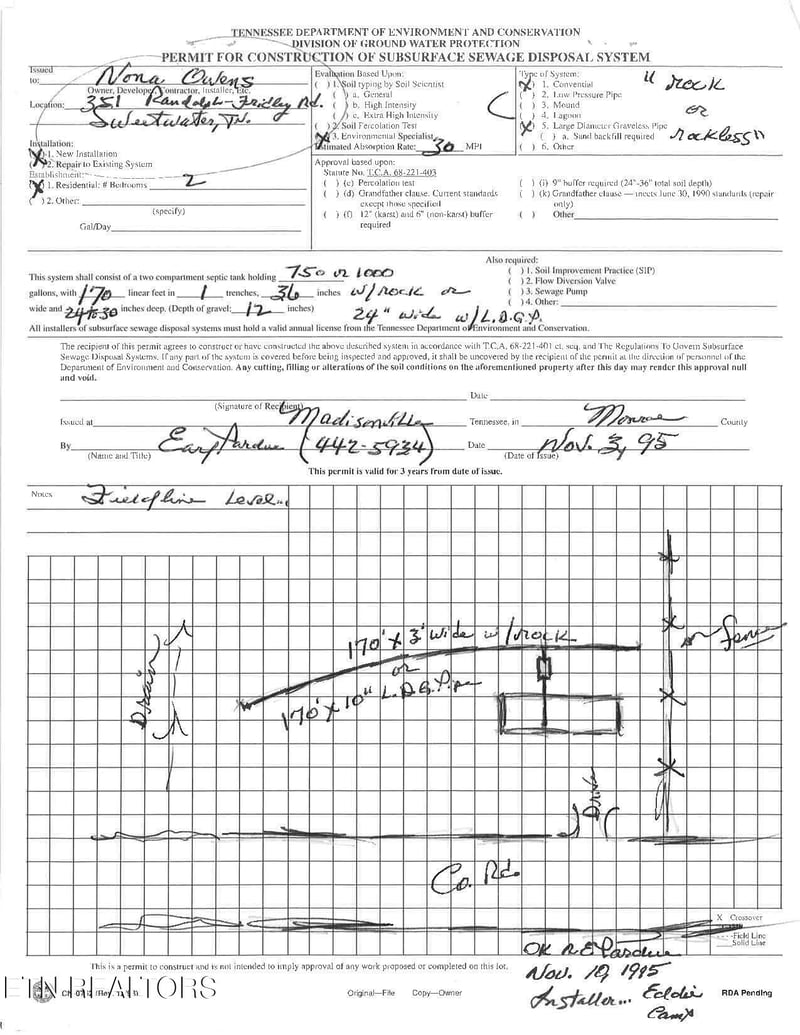 TENNESSEE DEPARTMENT OF ENVIRONMENT AND CONSERVATION
DIVISION OF GROUND WATER PROTECTION
PERMIT FOR CONSTRUCTION OF SUBSURFACE SEWAGE DISPOSAL SYSTEM
Issued to: Nona Owens
Owner, Developer, Contractor, Installer, Etc.
Location: 351 Randolph-Fridley Rd.
Sweetwater, Tn.
Installation:
(X) 1. New Installation
( ) 2. Repair to Existing System
Establishment:
(X) 1. Residential: # Bedrooms 2
( ) 2. Other:
(specify)
Gal/Day
Evaluation Based Upon:
( ) 1. Soil typing by Soil Scientist
( ) a. General
( ) b. High Intensity
( ) c. Extra High Intensity
( ) 2. Soil Percolation Test
(X) 3. Environmental Specialist
Estimated Absorption Rate: 30 MPI
Type of System:
(X) 1. Convential " ROCK
( ) 2. Low Pressure Pipe
( ) 3. Mound OR
( ) 4. Lagoon
(X) 5. Large Diameter Graveless Pipe
( ) a. Sand backfill required Rockless"
( ) 6. Other
Approval based upon:
Statute No. T.C.A. 68-221-403
( ) (c) Percolation test
( ) (d) Grandfather clause. Current standards
except those specified
( ) (f) 12" (karst) and 6" (non-karst) buffer
required
( ) (i) 9" buffer required (24"-36" total soil depth)
( ) (k) Grandfather clause — meets June 30, 1990 standards (repair
only)
( ) Other
This system shall consist of a two compartment septic tank holding 750 or 1000
gallons, with 170 linear feet in 1 trenches, 36 inches w/rock or
wide and 24 to 30 inches deep. (Depth of gravel: 12 inches) 24" wide w/L.D.G.P.
Also required:
( ) 1. Soil Improvement Practice (SIP)
( ) 2. Flow Diversion Valve
( ) 3. Sewage Pump
( ) 4. Other:
All installers of subsurface sewage disposal systems must hold a valid annual license from the Tennessee Department of Environment and Conservation.
The recipient of this permit agrees to construct or have constructed the above described system in accordance with T.C.A. 68-221-401 et. seq. and The Regulations To Govern Subsurface
Sewage Disposal Systems. If any part of the system is covered before being inspected and approved, it shall be uncovered by the recipient of the permit at the direction of personnel of the
Department of Environment and Conservation. Any cutting, filling or alterations of the soil conditions on the aforementioned property after this day may render this approval null
and void.
Date
(Signature of Recipient)
Issued at Madisonville Tennessee, in Monroe County
By Earl Pardue (442-5934) Date Nov. 3, 95
(Name and Title) (Date of Issue)
This permit is valid for 3 years from date of issue.
Notes Fieldline Level..
170' X 3' wide w/rock
or
170' X 10" L.D.G. Pipe
Drain
fence
Drive
Co. Rd.
X Crossover
- - - -Field Line
Solid Line
This is a permit to construct and is not intended to imply approval of any work proposed or completed on this lot.
OK R E Pardue
Nov. 10, 1995
Installer... Eddie
Camp
ETN REALTORS
Original—File Copy—Owner
RDA Pending